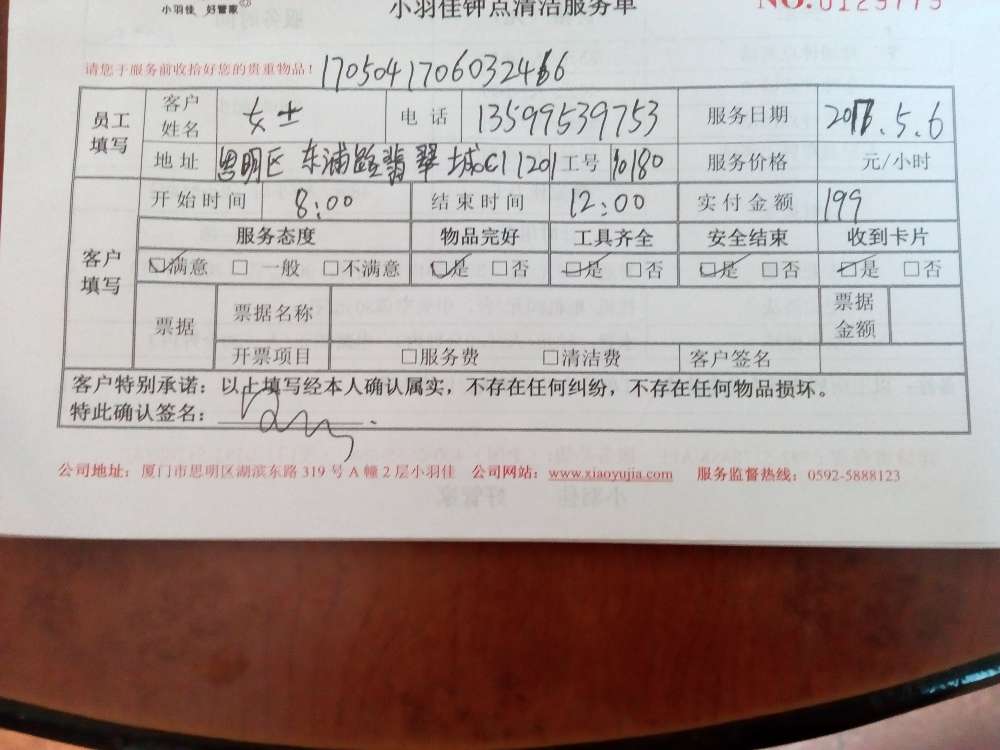 小羽佳 好管家
小羽佳钟点清洁服务单
NO.0129775
请您于服务前收拾好您的贵重物品！
员工填写 客户姓名 女士 电话 13599539753 服务日期 2017.5.6
地址 思明区东浦路翡翠城C1 1201 工号 10180 服务价格 元/小时
客户填写 开始时间 8:00 结束时间 12:00 实付金额 199
服务态度 物品完好 工具齐全 安全结束 收到卡片
☑满意 □ 一般 □不满意 ☑是 □否 ☑是 □否 ☑是 □否 ☑是 □否
票据 票据名称 票据金额
开票项目 □服务费 □清洁费 客户签名
客户特别承诺：以上填写经本人确认属实，不存在任何纠纷，不存在任何物品损坏。
特此确认签名：
公司地址：厦门市思明区湖滨东路 319 号 A 幢 2 层小羽佳 公司网站：www.xiaoyujia.com 服务监督热线：0592-5888123